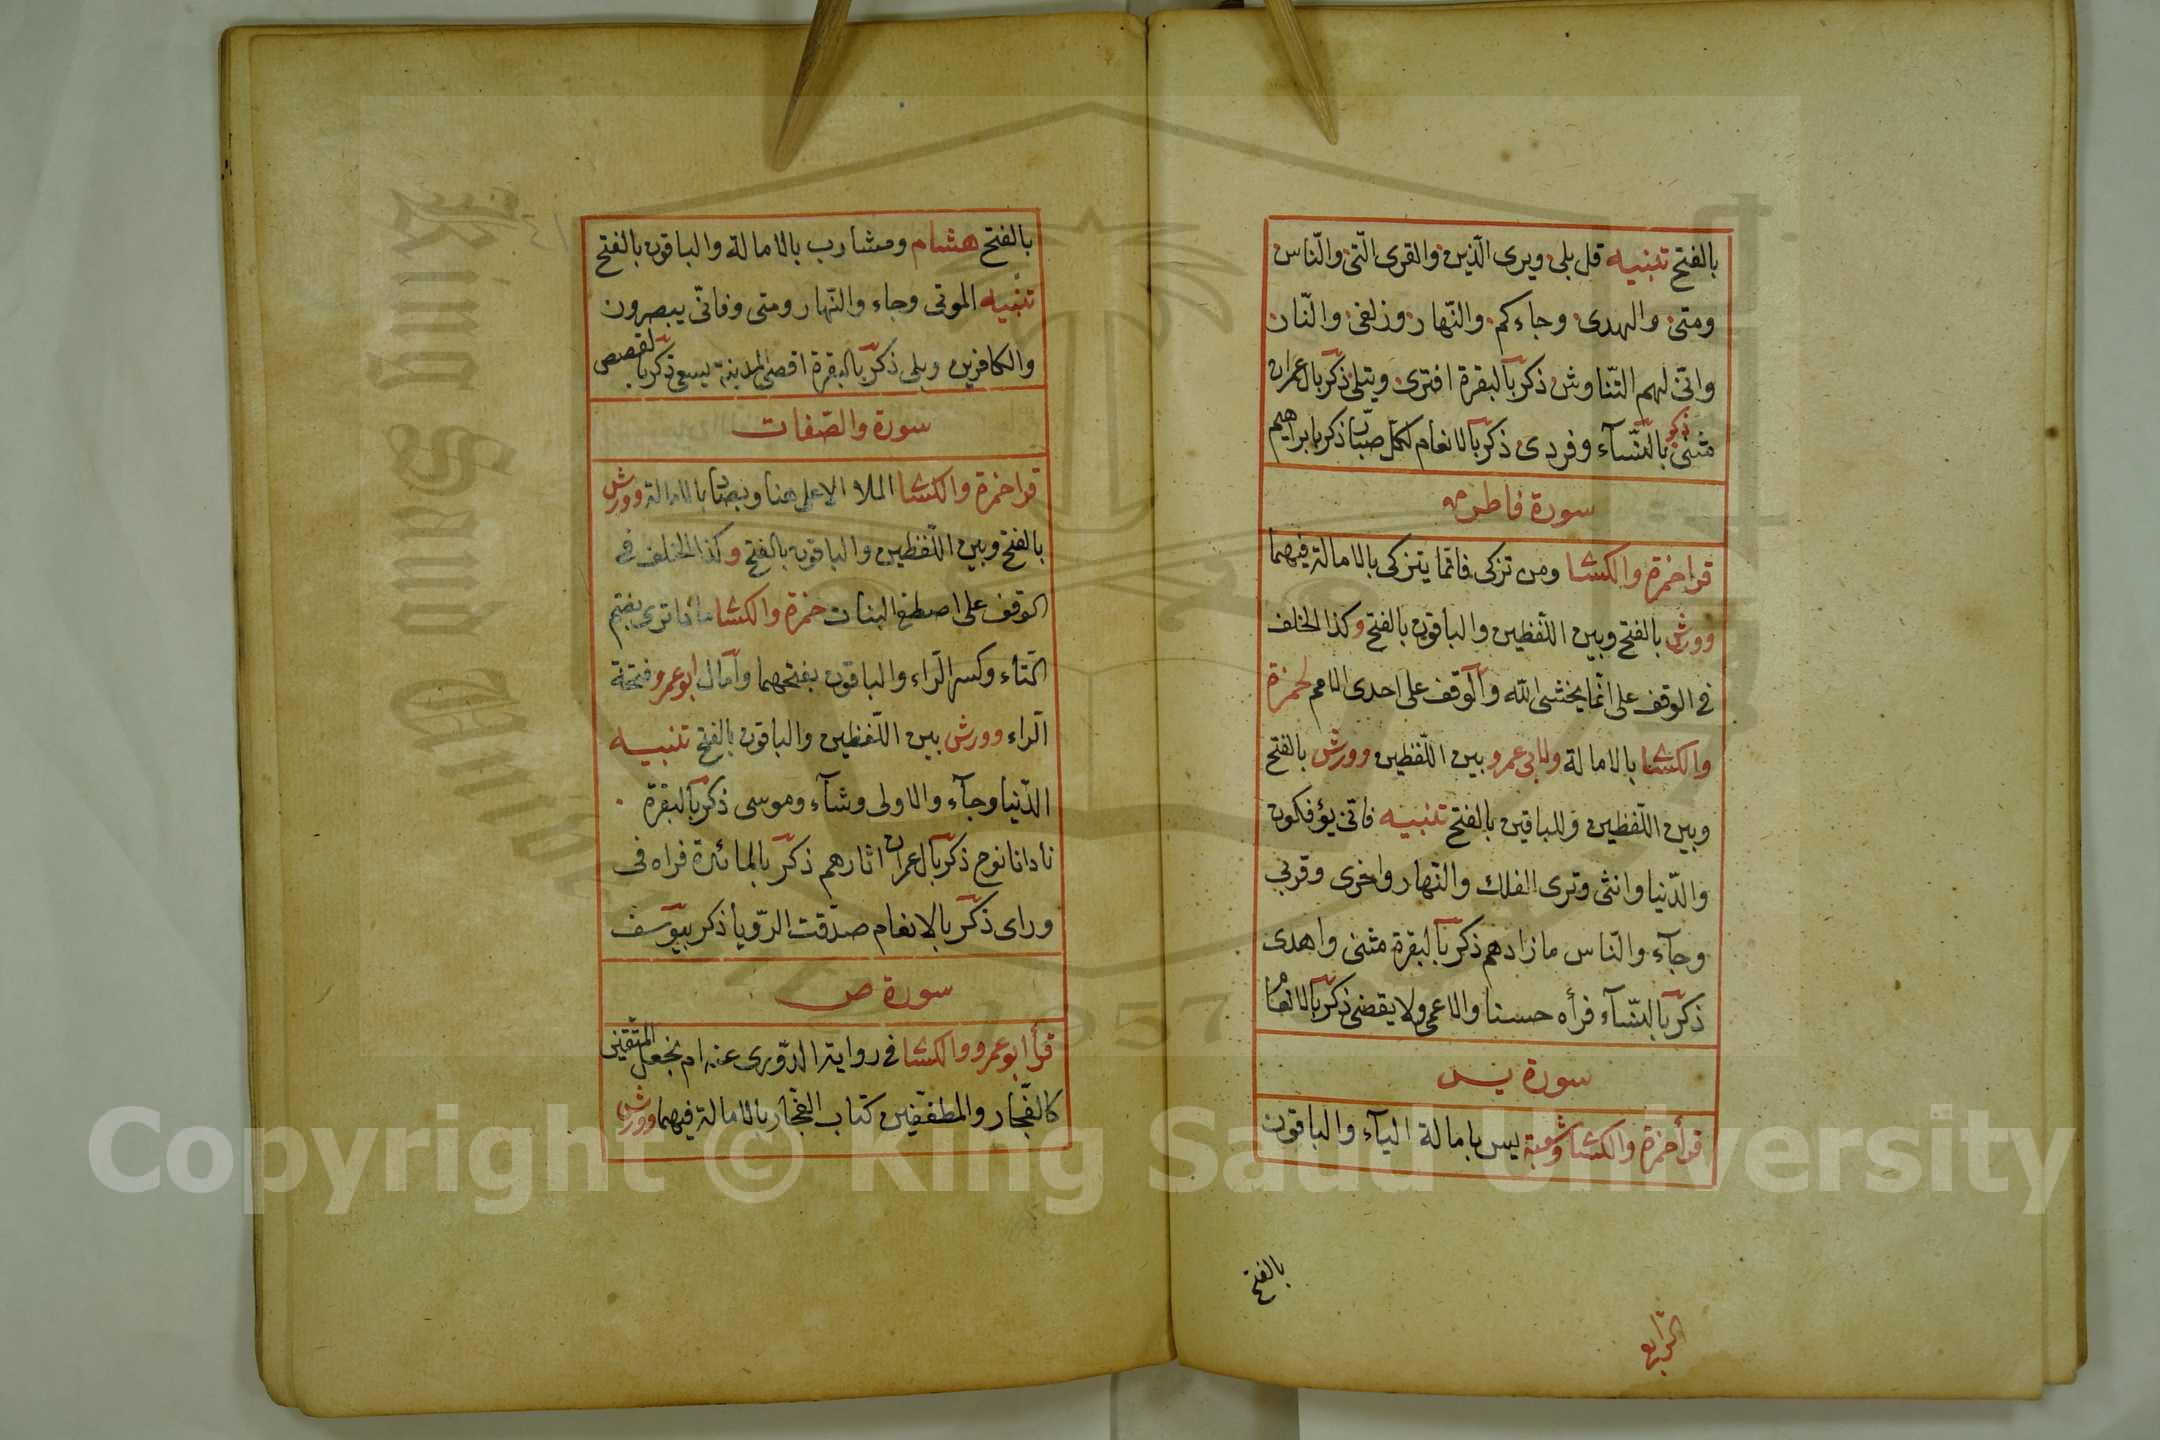 بالفتح تنبيه قل بلى ويرى الّذين والقرى الّتى والنّاس
ومتى والهدى وجاءكم والنّهار وزلفى والنّار
وانّى لهم التّناوش ذكر بالبقرة افترى ويتلى ذكر بال عمران
مثنى ذكر بالنّسآء وفردى ذكر بالانعام لكل صبّار ذكر بابراهيم
سورة فاطر
قرا حمزة والكسا ومن تزكى فانّما يتزكى بالامالة فيهما
وورش بالفتح وبين اللّفظين والباقون بالفتح وكذا الخلف
فى الوقف على انّما يخشى الله والوقف على احدى الامم لحمزة
والكسا بالامالة ولابى عمرو بين اللّفظين وورش بالفتح
وبين اللّفظين وللباقين بالفتح تنبيه فانّى يؤفكون
والدّنيا وانثى وترى الفلك والنّهار واخرى وقربى
وجآء والنّاس ما زادهم ذكر بالبقرة مثنى واهدى
ذكر بالنّسآء فرأه حسنا والاعمى ولا يقضى ذكر بالانعام
سورة يس
قرأ حمزة والكسا وشعبة يس بامالة اليآء والباقون
بالفتح
الرّابع
بالفتح هشام ومشارب بالامالة والباقون بالفتح
تنبيه الموتى وجاء والنّهار ومتى وفانّى يبصرون
والكافرين وبلى ذكر بالبقرة اقصى المدينة يسعى ذكر بالقصص
سورة والصّفات
قرا حمزة والكسا الملا الاعلى هنا وبص بالامالة وورش
بالفتح وبين اللّفظين والباقون بالفتح وكذا الخلف فى
الوقف على اصطفى البنات حمزة والكسا ماذا ترى بضم
التّاء وكسر الرّاء والباقون بفتحهما وآمال ابو عمرو فتحة
الرّاء وورش بين اللّفظين والباقون بالفتح تنبيه
الدّنيا وجآء والاولى وشآء وموسى ذكر بالبقرة
نادانا نوح ذكر بال عمران اثارهم ذكر بالمائدة فراه فى
وراى ذكر بالانعام صدّقت الرّويا ذكر بيوسف
سورة ص
قرأ ابو عمرو والكسا فى رواية الدّورى عنه ام نجعل المتّقين
كالفجّار والمطففين كتاب الفجّار بالامالة فيهما وورش